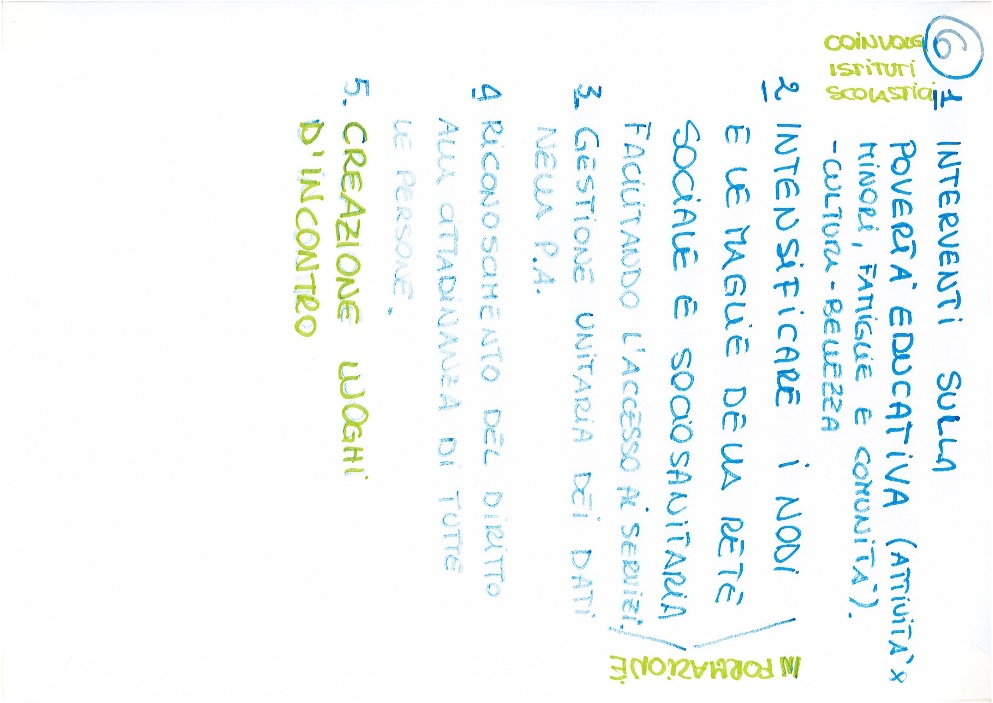 6
COINVOLGE
ISTITUTI
SCOLASTICI
1 INTERVENTI SULLA
POVERTA' EDUCATIVA (ATTIVITA' X
MINORI, FAMIGLIE E COMUNITA').
- CULTURA - BELLEZZA
2 INTENSIFICARE I NODI
E LE MAGLIE DELLA RETE
SOCIALE E SOCIOSANITARIA
FACILITANDO L'ACCESSO AI SERVIZI.
INFORMAZIONE
3. GESTIONE UNITARIA DEI DATI
NELLA P.A.
4 RICONOSCIMENTO DEL DIRITTO
ALLA CITTADINANZA DI TUTTE
LE PERSONE.
5. CREAZIONE LUOGHI
D'INCONTRO